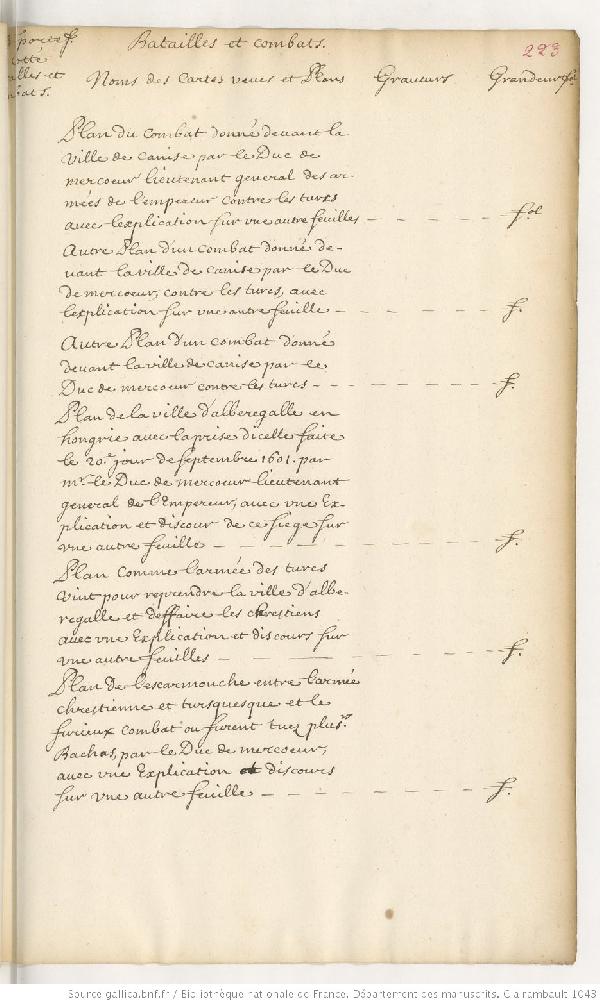 Batailles et combats.
223
portef.
cotté
alles et
bats.
Noms des Cartes veues et Plans Graveurs Grandeur
Plan du combat donné devant la
ville de canise par le Duc de
mercoeur lieutenant general des ar-
mées de l'empereur contre les turcs
avec l'explication sur vne autre feuilles - - - - - fol
Autre Plan d'un combat donné de-
vant la ville de canise par le Duc
de mercoeur, contre les turcs, avec
l'explication sur vne autre feuille - - - - - f.
Autre Plan d'un combat donné
devant la ville de canise par le
Duc de mercoeur contre les turcs - - - - - f.
Plan de la ville d'alberegalle en
hongrie avec la prise d'icelle faite
le 20.e jour de septembre 1601. par
mr. le Duc de mercoeur lieutenant
general de l'Empereur, avec vne Ex-
plication et discour de ce siege sur
vne autre feuille - - - - - f.
Plan comme l'armée des turcs
vint pour reprendre la ville d'albe-
regalle et deffaire les chrestiens
avec vne Explication et discours sur
vne autre feuilles - - - - - f.
Plan de l'escarmouche entre l'armée
chrestienne et turquesque et le
furieux combat ou furent tuez plusrs
Bachas, par le Duc de mercoeur,
avec vne Explication et discours
sur vne autre feuille - - - - - f.
Source gallica.bnf.fr / Bibliothèque nationale de France. Département des manuscrits. Clairambault 1043